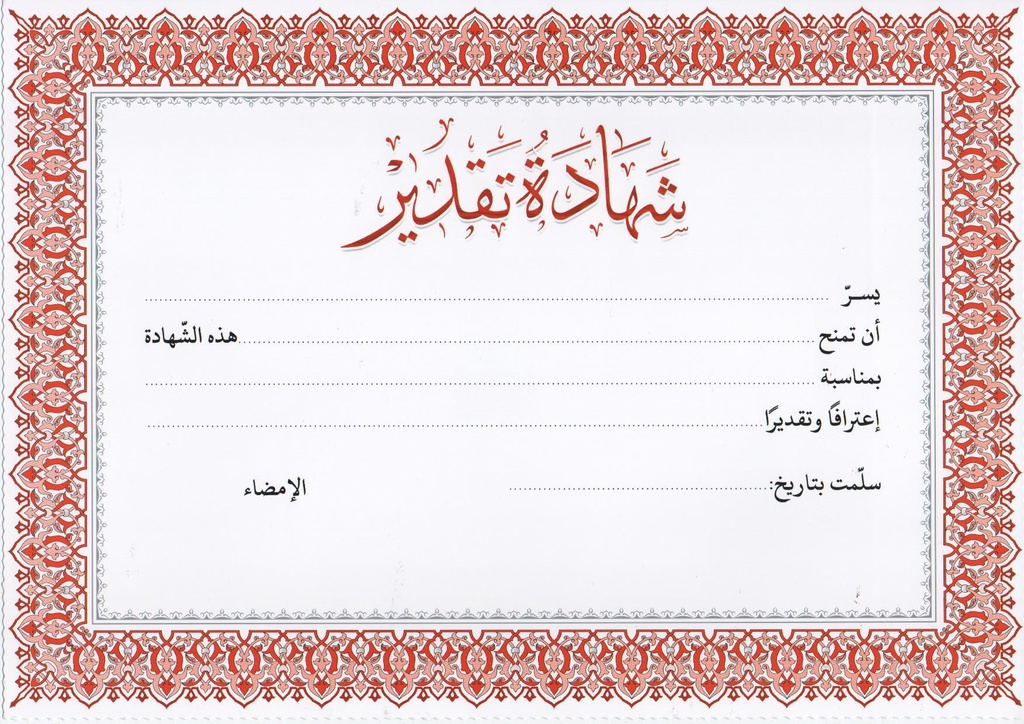 شَهَادَةُ تَقَدِيرْ
يسـرّ ........................................
أن تمنح ........................................ هذه الشّهادة
بمناسبة ........................................
إعترافًا وتقديرًا ........................................
سلّمت بتاريخ: ........................................ الإمضاء